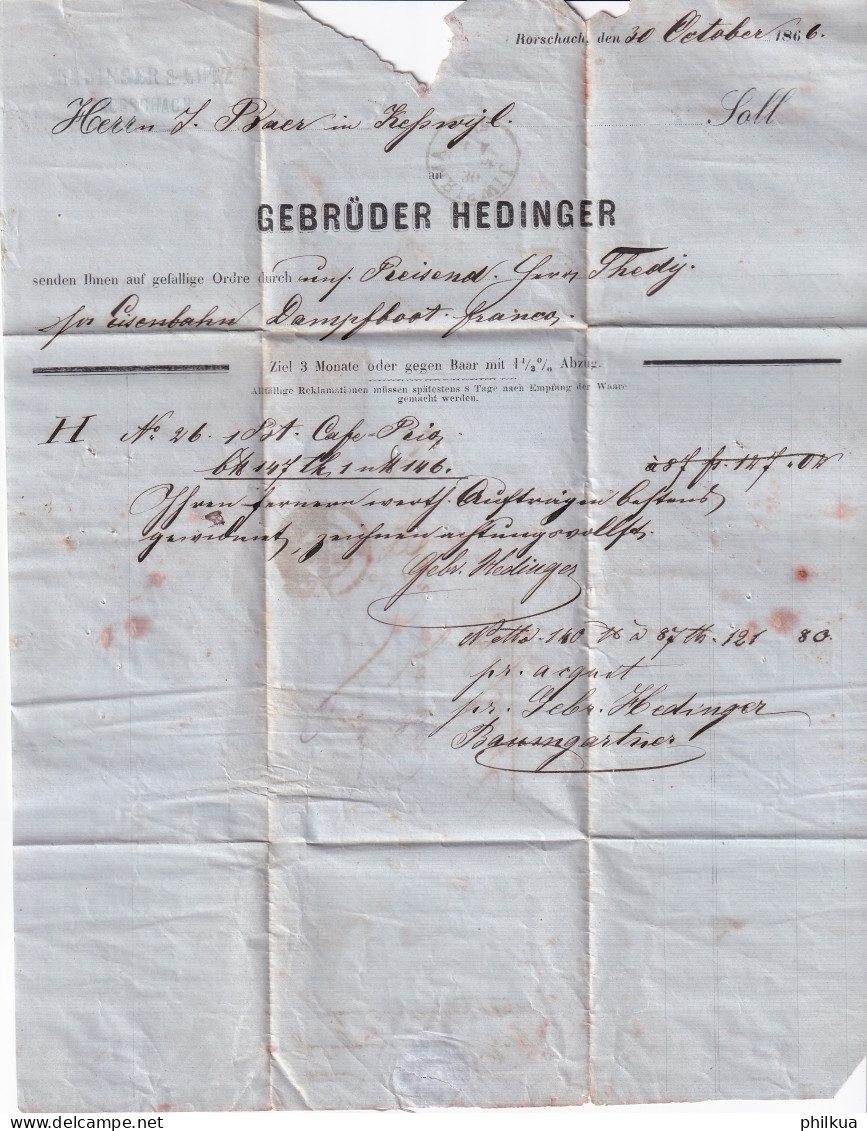 Rorschach, den 30 October 1866.
Herrn J. Baer in Keßwyl. Soll
an
GEBRÜDER HEDINGER
senden Ihnen auf gefällige Ordre durch uns. Reisend. Herrn Thedy.
per Eisenbahn Dampfboot franco.
Ziel 3 Monate oder gegen Baar mit 1 1/2 % Abzug.
Allfällige Reklamationen müssen spätestens 8 Tage nach Empfang der Waare
gemacht werden.
H No 26. 1 Bt. Cafe-Rio
147 1 146. à 87 fr. 127.02
Ihren fernern werth. Aufträgen bestens
gewidmet, zeichnen achtungsvollst.
Gebr. Hedinger
Netto 140 ℔ à 87 fr. 121 80.
pr. acquit
pr. Gebr. Hedinger
Baumgartner
philkua.com philkua